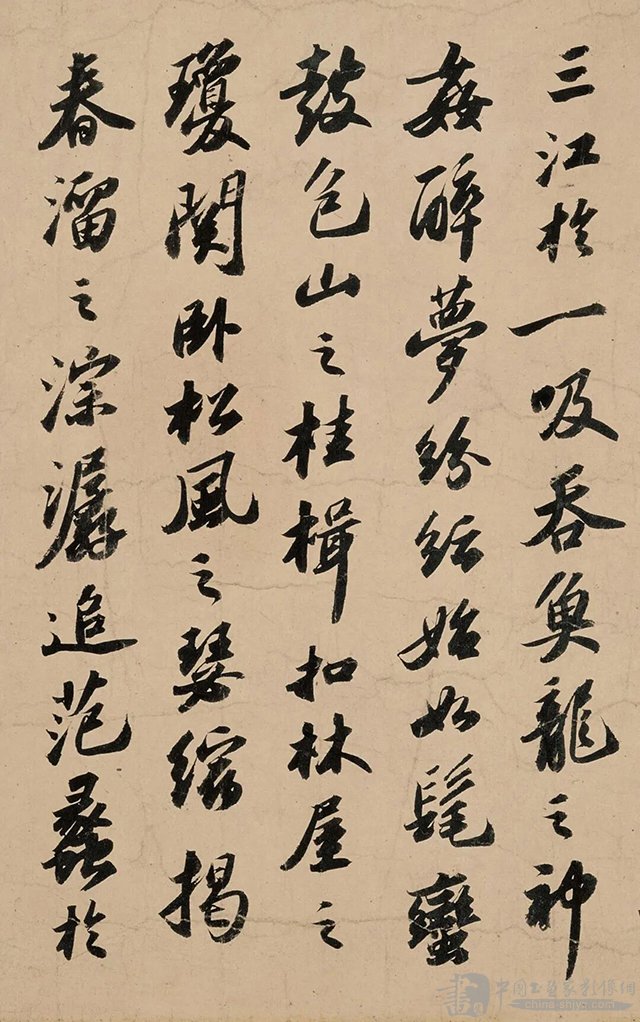 三江於一吸吞魚龍之神
姦醉夢紛紜始如髦蠻
鼓包山之桂楫扣林屋之
瓊關卧松風之瑟縮揭
春溜之淙潺追范蠡於
中国书画家影像网
china-shjyx.com